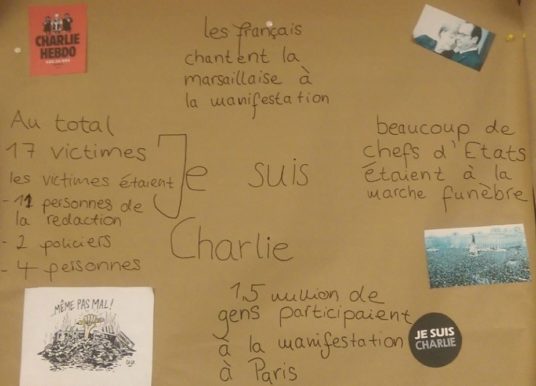 CHARLIE
HEBDO
les français
chantent la
marsaillaise à
la manifestation
Au total
17 victimes
les victimes étaient
- 11 personnes de
la redaction
- 2 policiers
- 4 personnes
Je suis
Charlie
beaucoup de
chefs d'Etats
étaient à la
marche funèbre
MÊME PAS MAL!
1,5 million de
gens participaient
à la manifestation
à Paris
JE SUIS
CHARLIE